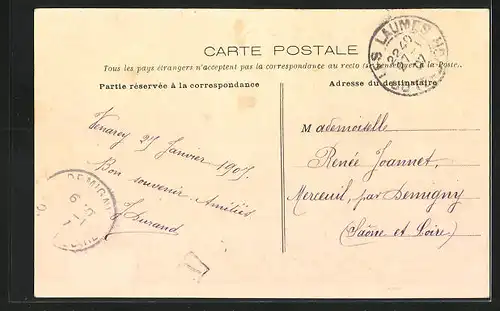 CARTE POSTALE
Tous les pays étrangers n'acceptent pas la correspondance au recto (se renseigner à la Poste).
Partie réservée à la correspondance
Adresse du destinataire
Venarey 27 Janvier 1907.
Bon souvenir Amitiés
J Durand
Mademoiselle
Renée Joannet,
Merceuil, par Demigny
(Saône et Loire)
LES LAUMES
DEMIGNY